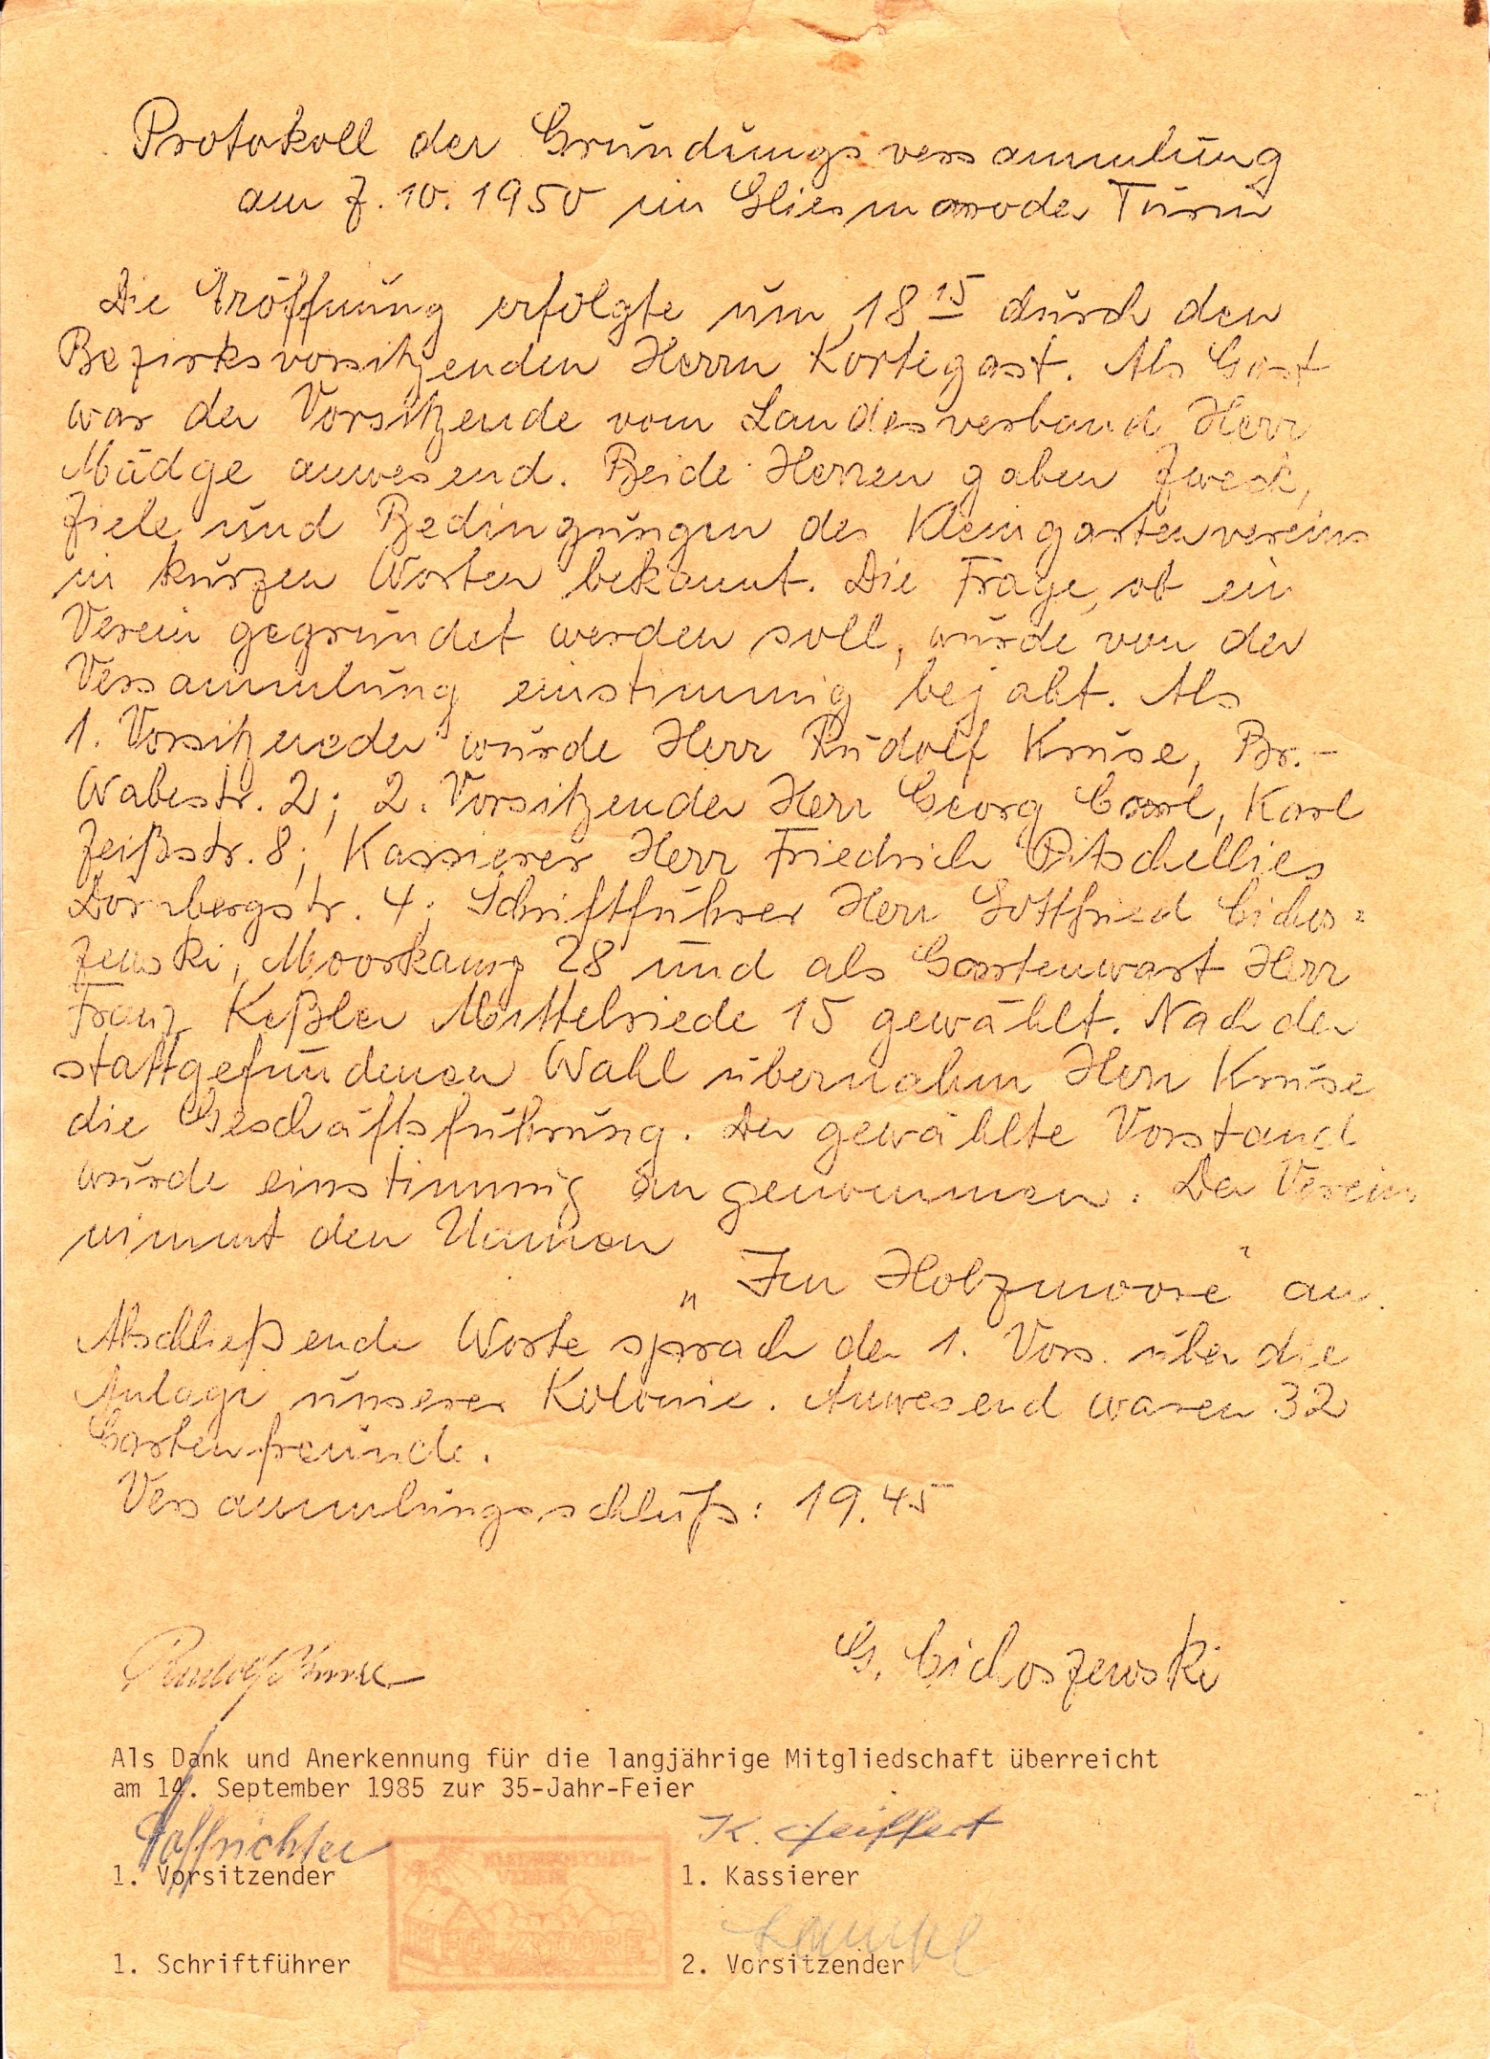 Protokoll der Gründungsversammlung
am 7. 10. 1950 im Gliesmaroder Turm
Die Eröffnung erfolgte um 18 15 durch den
Bezirksvorsitzenden Herrn Kortegast. Als Gast
war der Vorsitzende vom Landesverband Herr
Mädge anwesend. Beide Herren gaben Zweck,
Ziele und Bedingungen des Kleingartenvereins
in kurzen Worten bekannt. Die Frage, ob ein
Verein gegründet werden soll, wurde von der
Versammlung einstimmig bejaht. Als
1. Vorsitzender wurde Herr Rudolf Kruse, Br.-
Wabestr. 2; 2. Vorsitzender Herr Georg Carl, Karl
Zeißstr. 8; Kassierer Herr Friedrich Pitschellies
Dörnbergstr. 4; Schriftführer Herr Gottfried Cichos=
zewski, Moorkamp 28 und als Gartenwart Herr
Franz Keßler Mittelriede 15 gewählt. Nach der
stattgefundenen Wahl übernahm Herr Kruse
die Geschäftsführung. Der gewählte Vorstand
wurde einstimmig angenommen. Der Verein
nimmt den Namen
„Im Holzmoore" an.
Abschließende Worte sprach der 1. Vors. über die
Anlage unserer Kolonie. Anwesend waren 32
Gartenfreunde.
Versammlungsschluß: 19.45
Rudolf Kruse G. Cichoszewski
Als Dank und Anerkennung für die langjährige Mitgliedschaft überreicht
am 14. September 1985 zur 35-Jahr-Feier
K. Seiffert
1. Vorsitzender 1. Kassierer
KLEINGÄRTNER-
VEREIN
HOLZMOORE
1. Schriftführer 2. Vorsitzender